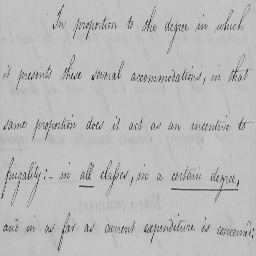 In proportion to the degree in which
it presents these several accommodations, in that
same proportion does it act as an incentive to
frugality:- in all classes, in a certain degree,
and in as far as current expenditure is concerned: